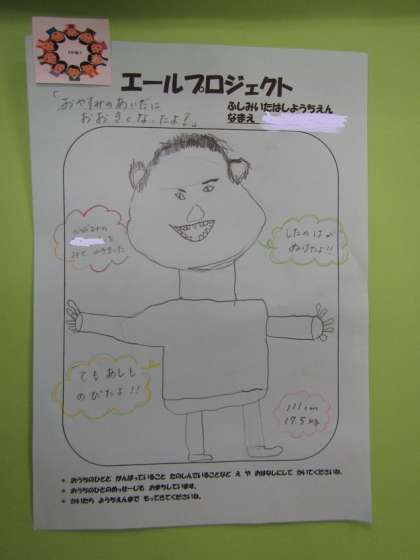 エールプロジェクト
「おやすみのあいだに
おおきくなったよ！」
ふしみいたはしようちえん
なまえ
したのはが
ぬけたよ!!
てもあしも
のびたよ!!
111cm
17.5kg
● おうちのひとと がんばっていること たのしんでいることなど え や おはなしにして かいてくださいね。
● おうちのひとのめっせーじも おまちしています。
● かいたら ようちえんまで もってきてくださいね。